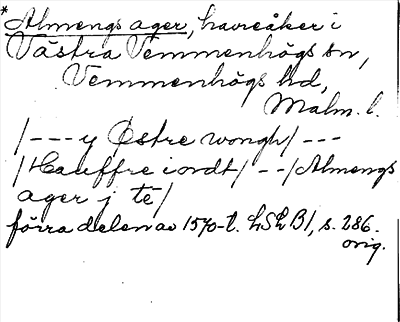 *Almengs ager, havreåker i
Västra Vemmenhögs sn,
Vemmenhögs hd,
Malm. l.
/---y Østre wongh/---
/Hauffre iordt/--/Almengs
ager j té/
förra delen av 1570-t. LSLB1, s. 286.
orig.